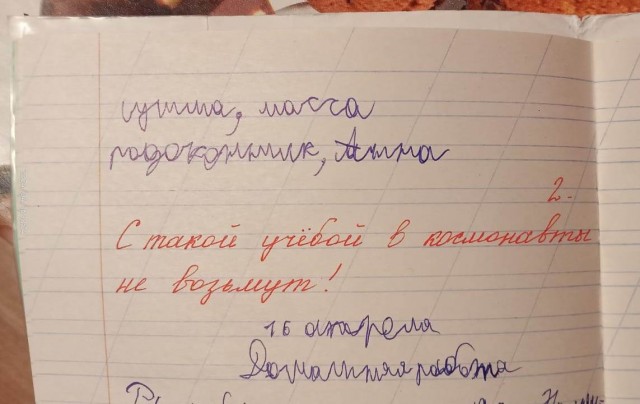 сумма, масса
, Анна
2.
С такой учёбой в космонавты
не возьмут!
16 апреля
Домашняя работа